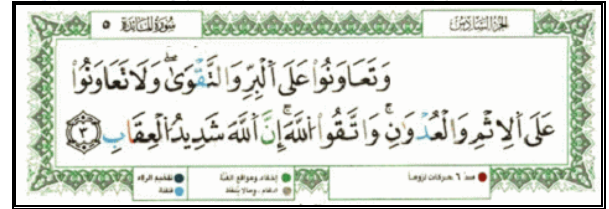 الجزء السادس سورة المائدة ٥
وَتَعَاوَنُوا۟ عَلَى ٱلْبِرِّ وَٱلتَّقْوَىٰ ۖ وَلَا تَعَاوَنُوا۟
عَلَى ٱلْإِثْمِ وَٱلْعُدْوَٰنِ ۚ وَٱتَّقُوا۟ ٱللَّهَ ۖ إِنَّ ٱللَّهَ شَدِيدُ ٱلْعِقَابِ ٣
مد ٦ حركات لزوماً إخفاء، ومواقع الغنّة تفخيم الراء
إدغام، وما لا يُلفظ قلقلة